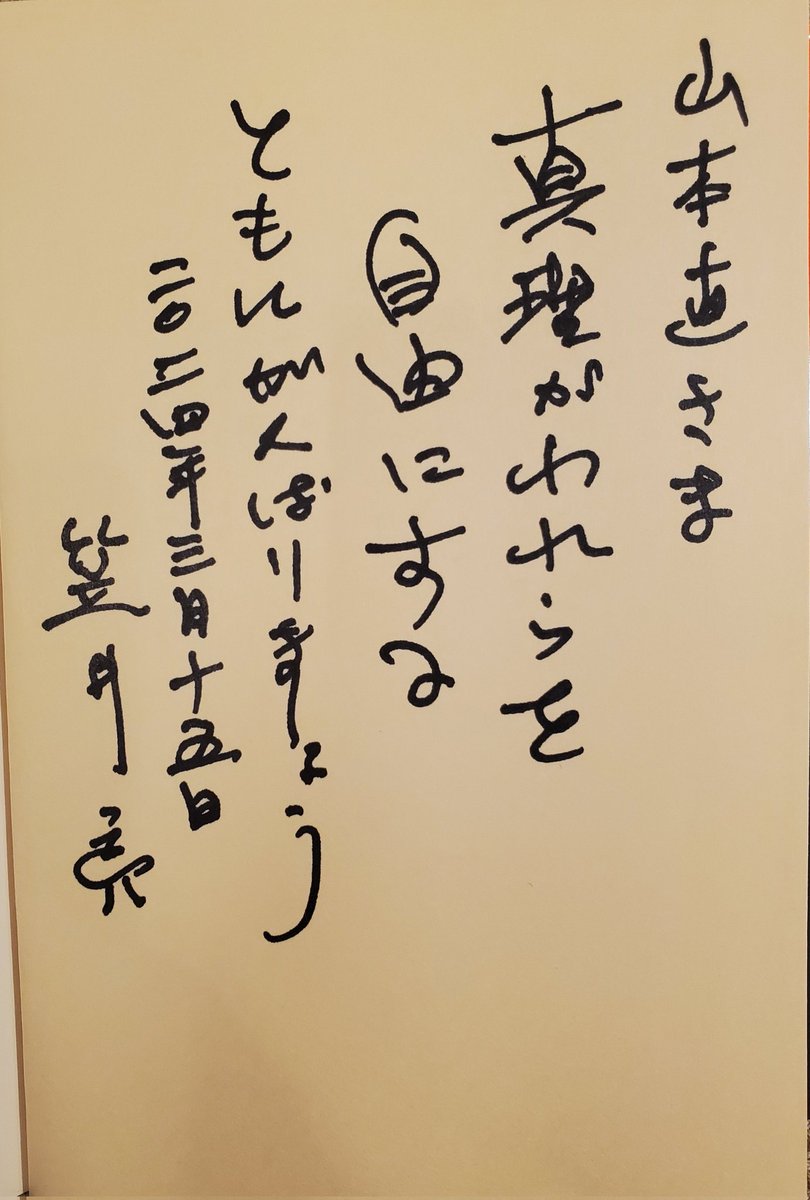 山本直さま
真理がわれらを
自由にする
ともにがんばりましょう
二〇二四年三月十五日
笠井亮